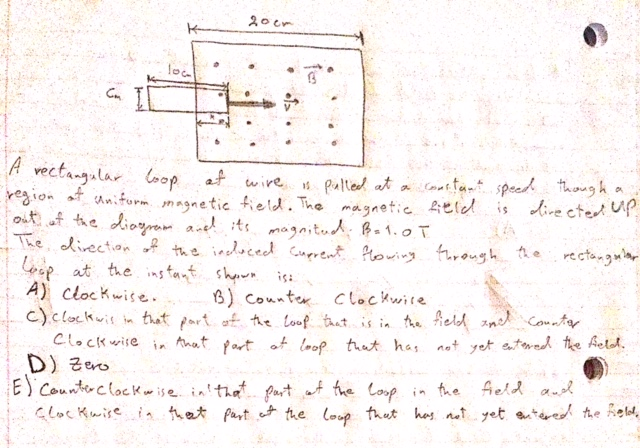 20cm
10cm
Cm
B
V
x
A rectangular loop of wire is pulled at a constant speed though a
region of uniform magnetic field. The magnetic field is directed UP
out of the diagram and its magnitud B=1.0T
The direction of the induced current flowing through the rectangular
loop at the instant shown is:
A) Clockwise. B) Counter Clockwise
C) Clockwis in that part of the loop that is in the field and Counter
Clockwise in that part of loop that has not yet entered the field.
D) Zero
E) Counterclockwise in that part of the loop in the field and
Clockwise in that part of the loop that has not yet entered the field